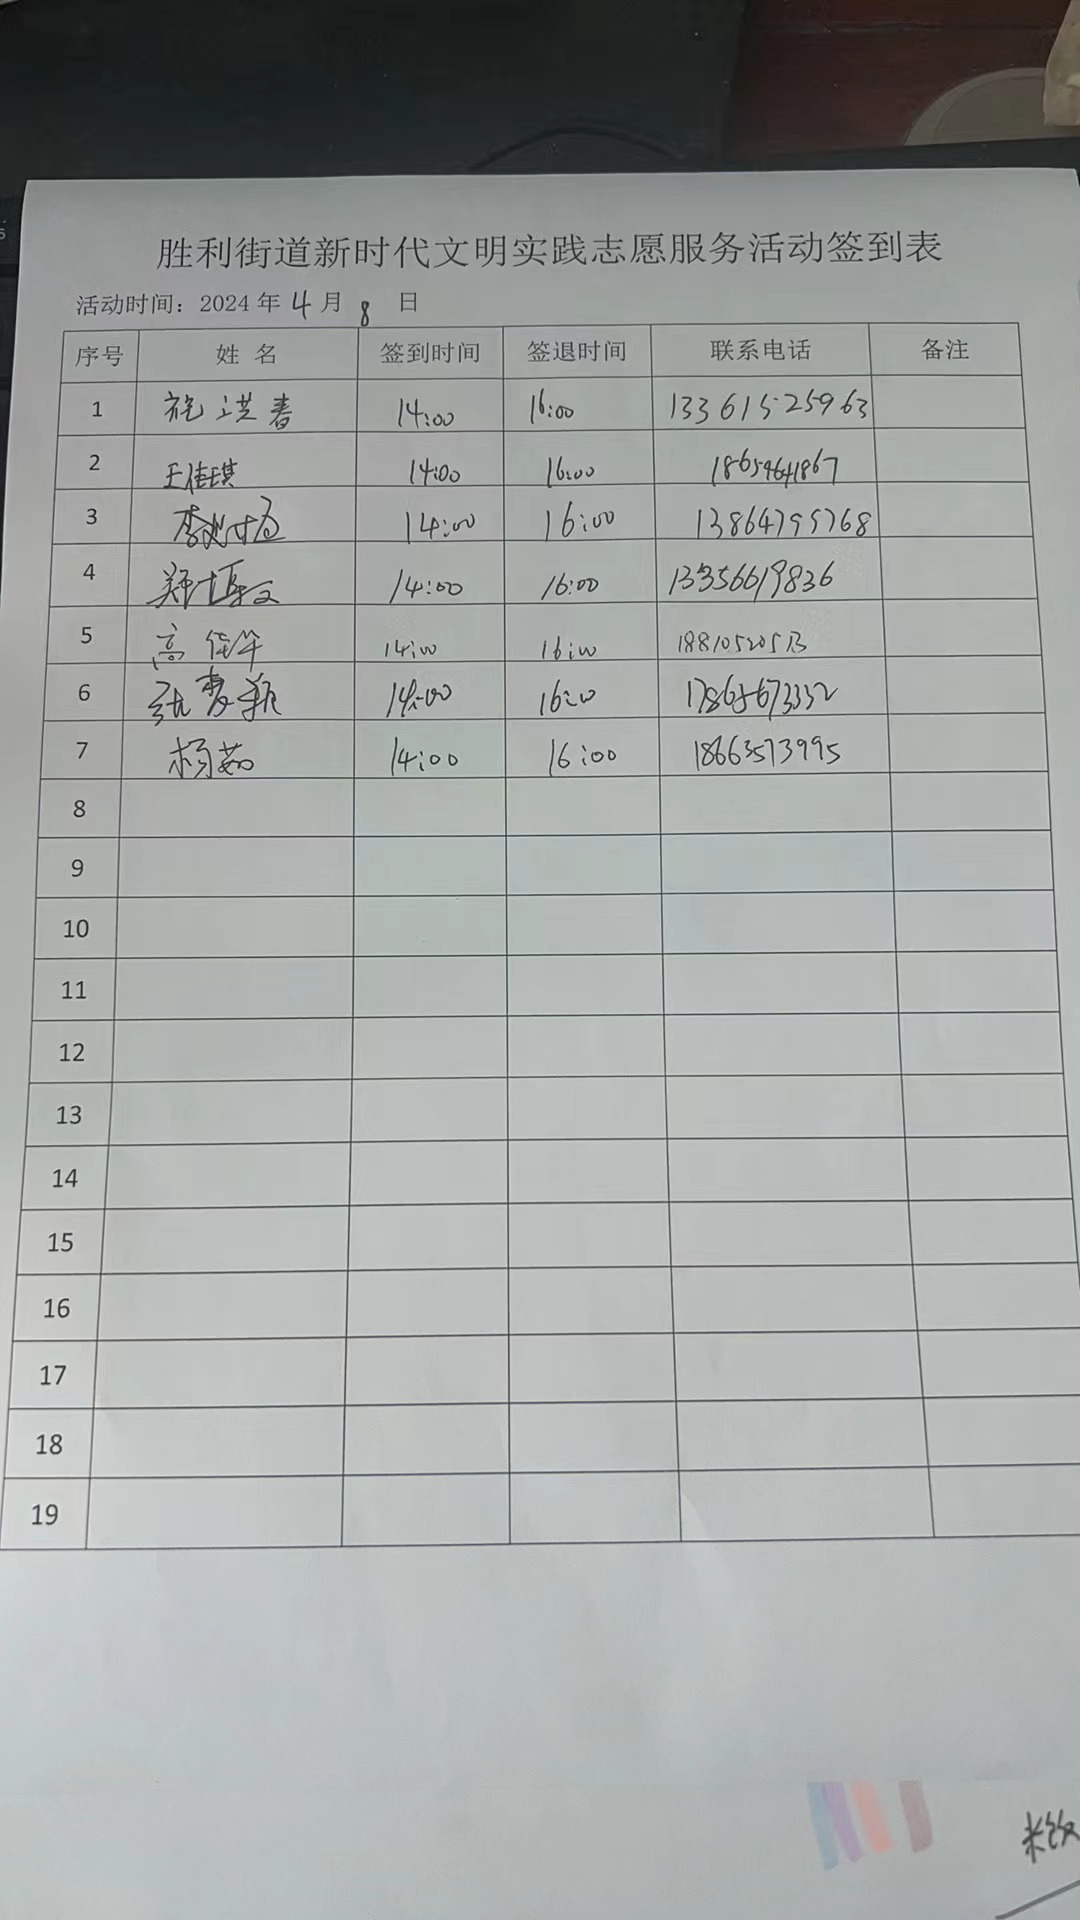 胜利街道新时代文明实践志愿服务活动签到表
活动时间：2024 年 4 月 8 日
序号 姓 名 签到时间 签退时间 联系电话 备注
1 施洪春 14:00 16:00 13361525963
2 王佳琪 14:00 16:00 18654641867
3 14:00 16:00 13864795768
4 郑博文 14:00 16:00 13356619836
5 高佳华 14:00 16:00
6 张梦航 14:00 16:00 17865673332
7 杨茹 14:00 16:00 18663573995
8
9
10
11
12
13
14
15
16
17
18
19